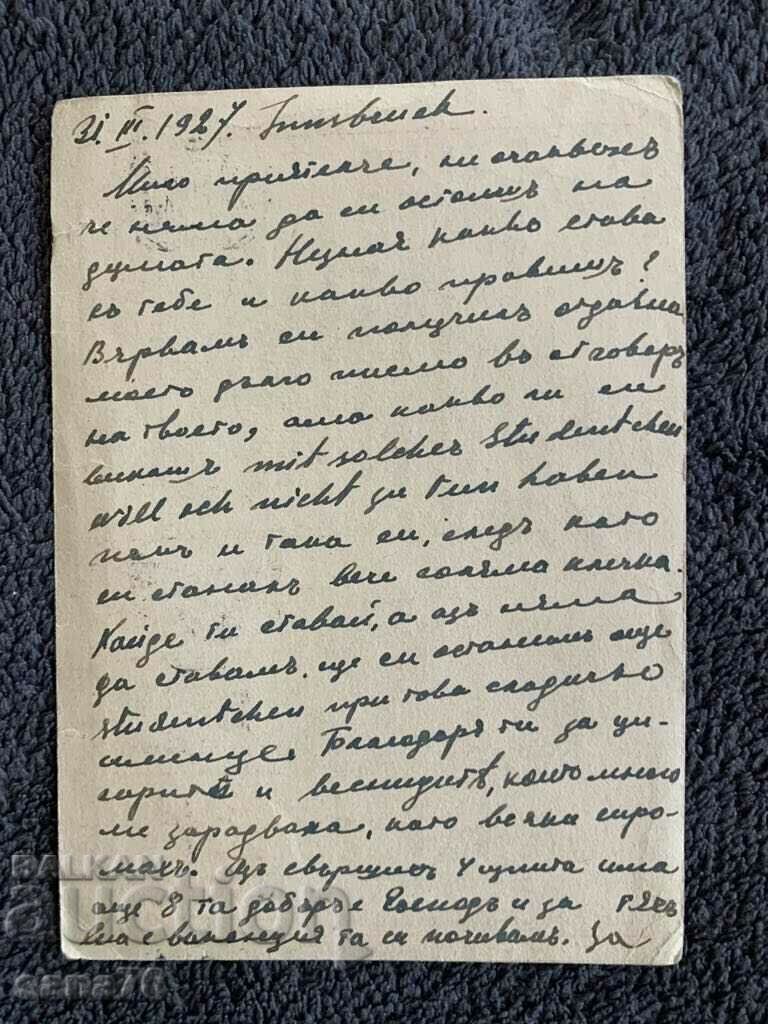 31. III. 1927. Innsbruck.
Мило приятелче, не очаквахъ
че няма да си остоишъ на
думата. Незная какво става
съ тебе и какво правишъ?
Вѣрвамъ си получилъ отдавна
моето дълго писмо въ отговоръ
на твоето, ама какво ли си
викашъ mit solcher Studentchen
will ich nicht zu tun haben
и така си, следъ като
си станалъ вече голѣма клечка.
Хайде ти ставай, а азъ няма
да ставамъ, ще си останемъ още
studentchen при това сладичко
Благодаря ти за ци-
гаритѣ и вестницитѣ, които много
ме зарадваха, като всяки сиро-
махъ. Азъ свършихъ 4 изпита има
още 8 та добъръ е Господъ и за тѣхъ
сега е ваканция та си почивамъ. За
BALKAN
auction
cena76